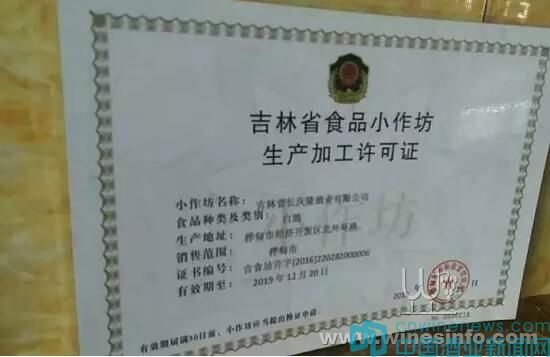 吉林省食品小作坊
生产加工许可证
小作坊名称：吉林省长庆隆酒业有限公司
食品种类及类别：白酒
生产地址：桦甸市经济开发区北外环路
销售范围：桦甸市
证书编号：吉食坊许字[2016]220282000006
有效期至：2019年12月20日
小作坊
日
有效期届满30日前，小作坊应当提出换证申请。
www.winesinfo.com
中国酒业新闻网